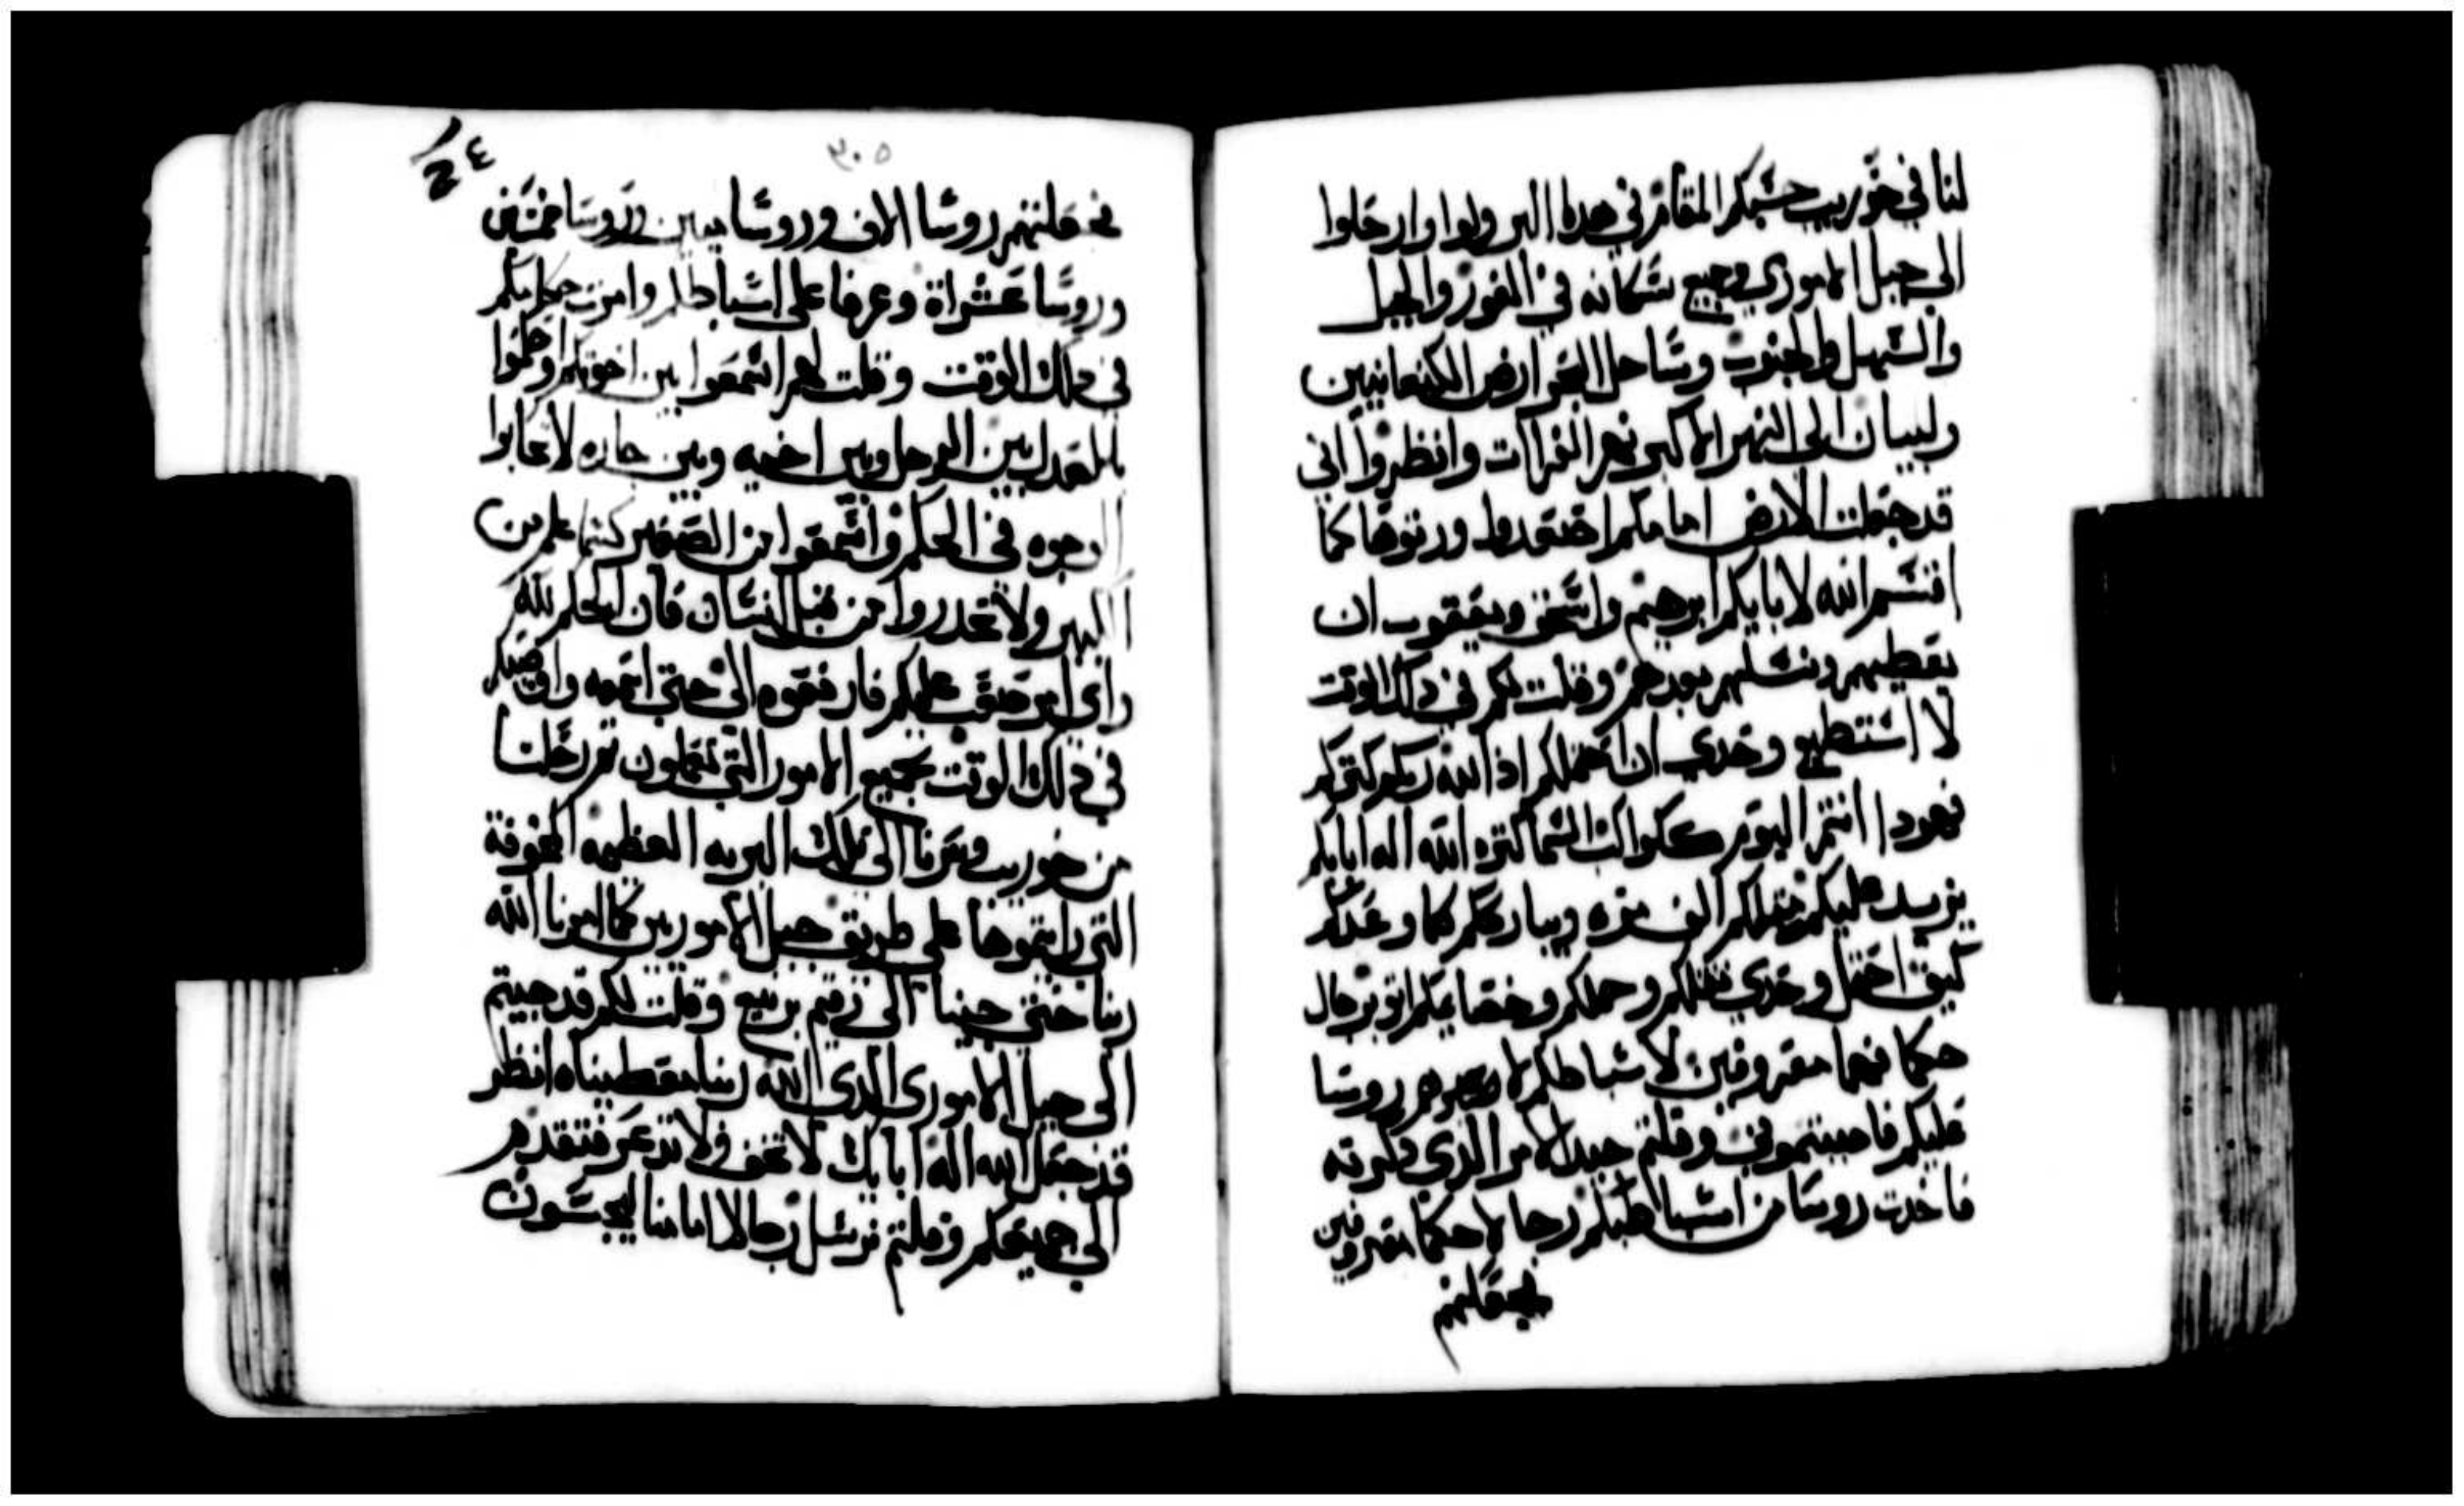 لنا في حوريب حسبكم المقام في هدا البر ولوا وارحلوا
الي جبل الاموري وجميع سكانه في الغور والجبل
والسهل والجنوب وساحل البحر ارض الكنعانيين
ولبنان الى النهر الاكبر نهر الفرات وانظروا اني
قد جعلت الارض امامكم اصعدوا ورتوها كما
اقسم الله لابايكم ابرهيم واسحق ويعقوب ان
يعطيهم ونسلهم بعدهم وقلت لكم في دلك الوقت
لا استطيع وحدي ان احملكم اذ الله ربكم كتركم
فهودا انتم اليوم ككواكب السما كتره الله اله ابايكم
يزيد عليكم مثلكم الف مره ويبارككم كما وعدكم
كيف احمل وحدي ثقلكم وحملكم وخصايمكم اتو برجال
حكما فهما معروفين لاسباطكم لاصيرهم روسا
عليكم فاجبتموني وقلتم جيد الامر الذي دكرته
فاخدت روسا من اسباطكم رجالا حكما معروفين
فجعلتهم
٣٠٥
٤
فجعلتهم روسا الاف وروسا ميين وروسا خمسين
وروسا عشراة وعرفا على اسباطكم وامرت حكامكم
في دلك الوقت وقلت لهم اسمعوا بين اخوتكم واحكموا
بالعدل بين الرجل وبين اخيه وبين جاره لا تحابوا
الوجوه في الحكم واسمعوا من الصغير كسماعكم من
الكبير ولا تحدروا من قبل انسان فان الحكم لله
واي امر صعب عليكم فارفعوه الي حتى اسمعه واوصيكم
في دلك الوقت بجميع الامور التي تعملون ثم رحلنا
من حوريب وعبرنا الى تلك البريه العظيمه المخوفة
التي رايتموها على طريق جبل الاموريين كما امرنا الله
ربنا حتى جينا الى رقيم برنيع وقلت لكم قد جيتم
الى جبل الاموري الدى الله ربنا معطيناه انظر
قد جعل الله اله ابايك لا تخف ولا تدعر فتقدم
الي جميعكم وقلتم نرسل رجالا امامنا ليجسسون